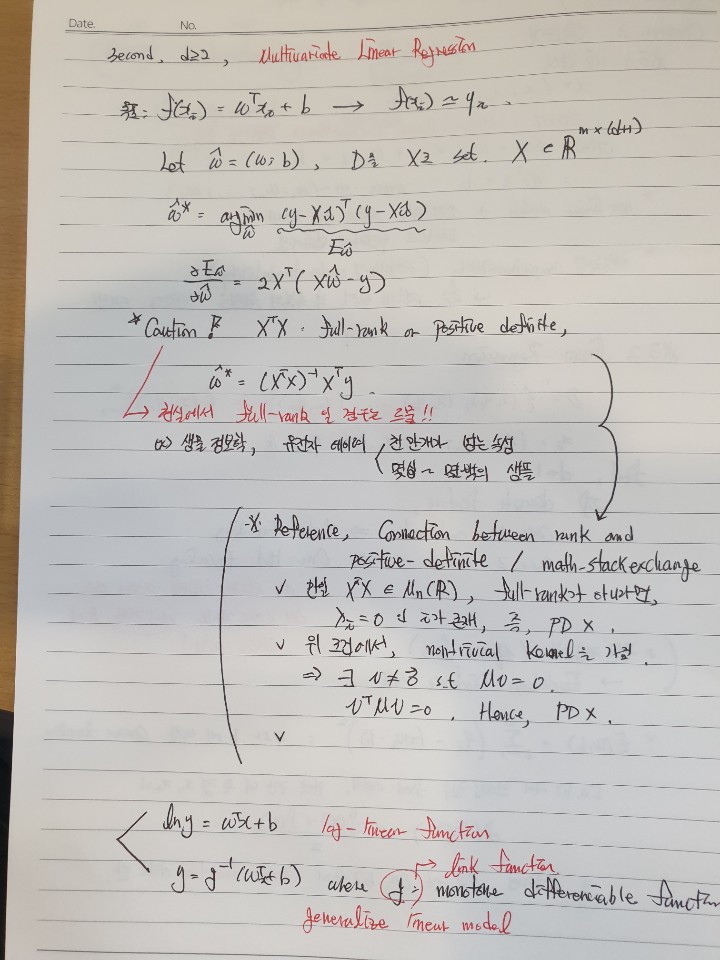 Date. No.
Second, d≥2, Multivariate Linear Regression
목표: f(x_i) = ω^T x_i + b → f(x_i) ≃ y_i.
Let ŵ = (ω; b), D를 X로 set. X ∈ ℝ^{m×(d+1)}
ŵ* = argmin_ŵ (y-Xŵ)^T (y-Xŵ)
E_ŵ
∂E_ŵ/∂ŵ = 2X^T(Xŵ - y)
* Caution! X^TX : full-rank or positive definite,
ŵ* = (X^TX)^{-1} X^T y.
→ 현실에서 full-rank 일 경우는 드물!!
ex) 생물 정보학, 유전자 데이터 < 천 만개가 넘는 속성
몇십 ~ 몇백의 샘플
※ Reference, Connection between rank and
positive-definite / math-stackexchange
✓ 만일 X^TX ∈ M_n(ℝ), full-rank가 아니라면,
λ_i = 0 인 i가 존재, 즉, PD X.
✓ 위 조건에서, nontrivial kernel을 가짐.
⇒ ∃ v ≠ 0⃗ s.t. Mv = 0.
v^T M v = 0. Hence, PD X.
✓
ln y = ω^T x + b log-linear function
→ link function
y = g^{-1}(ω^T x + b) where g : monotone differentiable function
generalize linear model